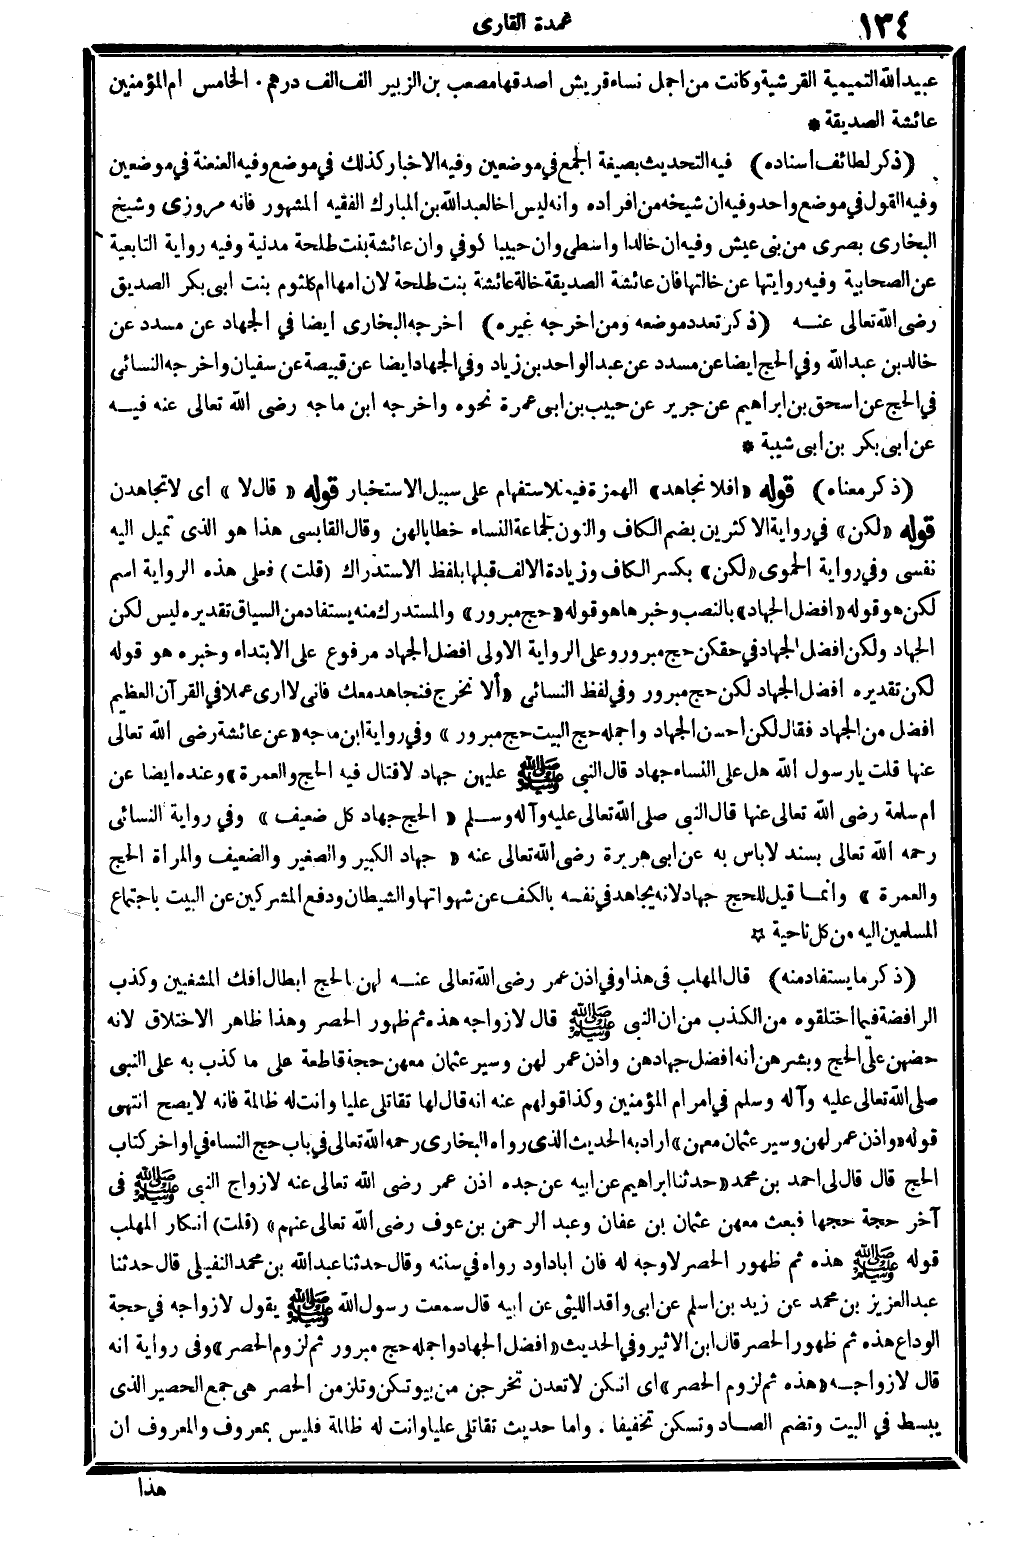 ١٣٤
عمدة القارى
عبيد الله التميمية القرشية وكانت من اجمل نساء قريش اصدقها مصعب بن الزبير الف الف درهم . الخامس ام المؤمنين
عائشة الصديقة *
(ذكر لطائف اسناده) فيه التحديث بصيغة الجمع في موضعين وفيه الاخبار كذلك في موضع وفيه العنعنة في موضعين
وفيه القول في موضع واحد وفيه ان شيخه من افراده وانه ليس اخا لعبد الله بن المبارك الفقيه المشهور فانه مروزى وشيخ
البخارى بصرى من بنى عيش وفيه ان خالدا واسطى وان حبيبا كوفي وان عائشة بنت طلحة مدنية وفيه رواية التابعية
عن الصحابية وفيه روايتها عن خالتها فان عائشة الصديقة خالة عائشة بنت طلحة لان امها ام كلثوم بنت ابى بكر الصديق
رضى الله تعالى عنـه (ذكر تعدد موضعه ومن اخرجه غيره) اخرجه البخارى ايضا في الجهاد عن مسدد عن
خالد بن عبدالله وفي الحج ايضا عن مسدد عن عبد الواحد بن زياد وفي الجهاد ايضا عن قبيصة عن سفيان واخرجه النسائى
في الحج عن اسحق بن ابراهيم عن جرير عن حبيب بن ابى عمرة نحوه واخرجه ابن ماجه رضى الله تعالى عنه فيـه
عن ابى بكر بن ابى شيبة *
(ذكر معناه) قوله «افلا نجاهد» الهمزة فيه للاستفهام على سبيل الاستخبار قوله « قال لا » اى لا تجاهدن
قوله «لكن» في رواية الاكثرين بضم الكاف والنون لجماعة النساء خطابا لهن وقال القابسى هذا هو الذى تميل اليه
نفسى وفي رواية الحموى «لكن» بكسر الكاف وزيادة الالف قبلها بلفظ الاستدراك (قلت) فعلى هذه الرواية اسم
لكن هو قوله «افضل الجهاد» بالنصب وخبرها هو قوله «حج مبرور» والمستدرك منه يستفاد من السياق تقديره ليس لكن
الجهاد ولكن افضل الجهاد في حقكن حج مبرور وعلى الرواية الاولى افضل الجهاد مرفوع على الابتداء وخبره هو قوله
لكن تقديره افضل الجهاد لكن حج مبرور وفي لفظ النسائى «ألا نخرج فنجاهد معك فانى لا ارى عملا في القرآن العظيم
افضل من الجهاد فقال لكن احسن الجهاد واجمله حج البيت حج مبرور » وفي رواية ابن ماجه «عن عائشة رضى الله تعالى
عنها قلت يارسول الله هل على النساء جهاد قال النبى ﷺ عليهن جهاد لاقتال فيه الحج والعمرة» وعنده ايضا عن
ام سلمة رضى الله تعالى عنها قال النبى صلى الله تعالى عليه وآله وسـلم « الحج جهاد كل ضعيف » وفي رواية النسائى
رحمه الله تعالى بسند لاباس به عن ابى هريرة رضى الله تعالى عنه « جهاد الكبير والصغير والضعيف والمرأة الحج
والعمرة » وانمـا قيل للحج جهاد لانه يجاهد في نفسه بالكف عن شهواتها والشيطان ودفع المشركين عن البيت باجتماع
المسلمين اليه من كل ناحية ☆
(ذكر ما يستفاد منه) قال المهلب في هذا وفي اذن عمر رضى الله تعالى عنـه لهن الحج ابطال افك المشغبين وكذب
الرافضة فيما اختلقوه من الكذب من ان النبى ﷺ قال لازواجه هذه ثم ظهور الحصر وهذا ظاهر الاختلاق لانه
حضهن على الحج وبشرهن انه افضل جهادهن واذن عمر لهن وسير عثمان معهن حجة قاطعة على ما كذب به على النبى
صلى الله تعالى عليه وآله وسلم في امر ام المؤمنين وكذا قولهم عنه انه قال لها تقاتلى عليا وانت له ظالمة فانه لا يصح انتهى
قوله «واذن عمر لهن وسير عثمان معهن» اراد به الحديث الذى رواه البخارى رحمه الله تعالى في باب حج النساء في اواخر كتاب
الحج قال قال لى احمد بن محمد «حدثنا ابراهيم عن ابيه عن جده اذن عمر رضى الله تعالى عنه لازواج النبى ﷺ فى
آخر حجة حجها فبعث معهن عثمان بن عفان وعبد الرحمن بن عوف رضى الله تعالى عنهم» (قلت) انـكار المهلب
قوله ﷺ هذه ثم ظهور الحصر لاوجه له فان اباداود رواه في سننه وقال حدثنا عبدالله بن محمد النفيلى قال حدثنا
عبد العزيز بن محمد عن زيد بن اسلم عن ابى واقد الليثى عن ابيه قال سمعت رسول الله ﷺ يقول لازواجه في حجة
الوداع هذه ثم ظهور الحصر قال ابن الاثير وفي الحديث «افضل الجهاد واجمله حج مبرور ثم لزوم الحصر» وفى رواية انه
قال لازواجـه «هذه ثم لزوم الحصر» اى انـكن لا تعدن تخرجن من بيوتـكن وتلزمن الحصر هى جمع الحصير الذى
يبسط في البيت وتضم الصـاد وتسكن تخفيفا . واما حديث تقاتلى عليا وانت له ظالمة فليس بمعروف والمعروف ان
هذا